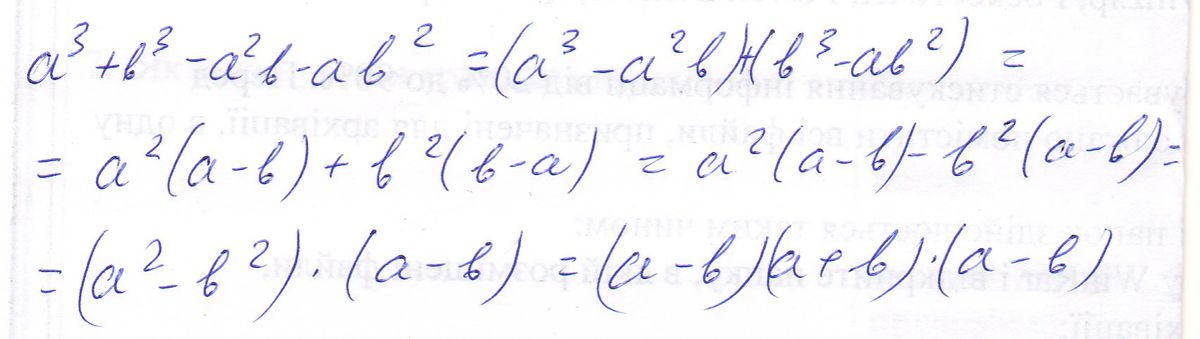 a³ + b³ - a²b - ab² = (a³ - a²b) + (b³ - ab²) =
= a²(a - b) + b²(b - a) = a²(a - b) - b²(a - b) =
= (a² - b²) · (a - b) = (a - b)(a + b) · (a - b)